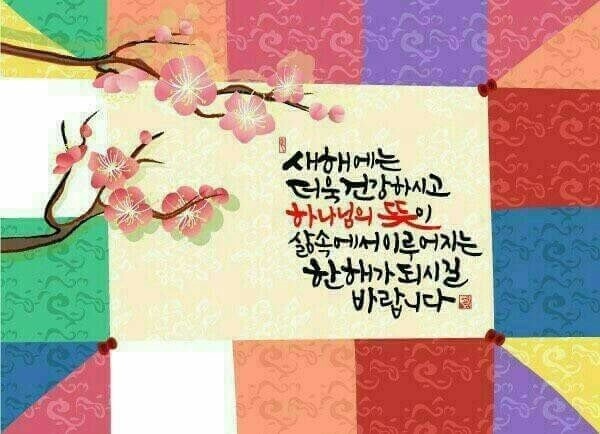 새해에는
더욱 건강하시고
하나님의 뜻이
삶속에서 이루어지는
한해가 되시길
바랍니다